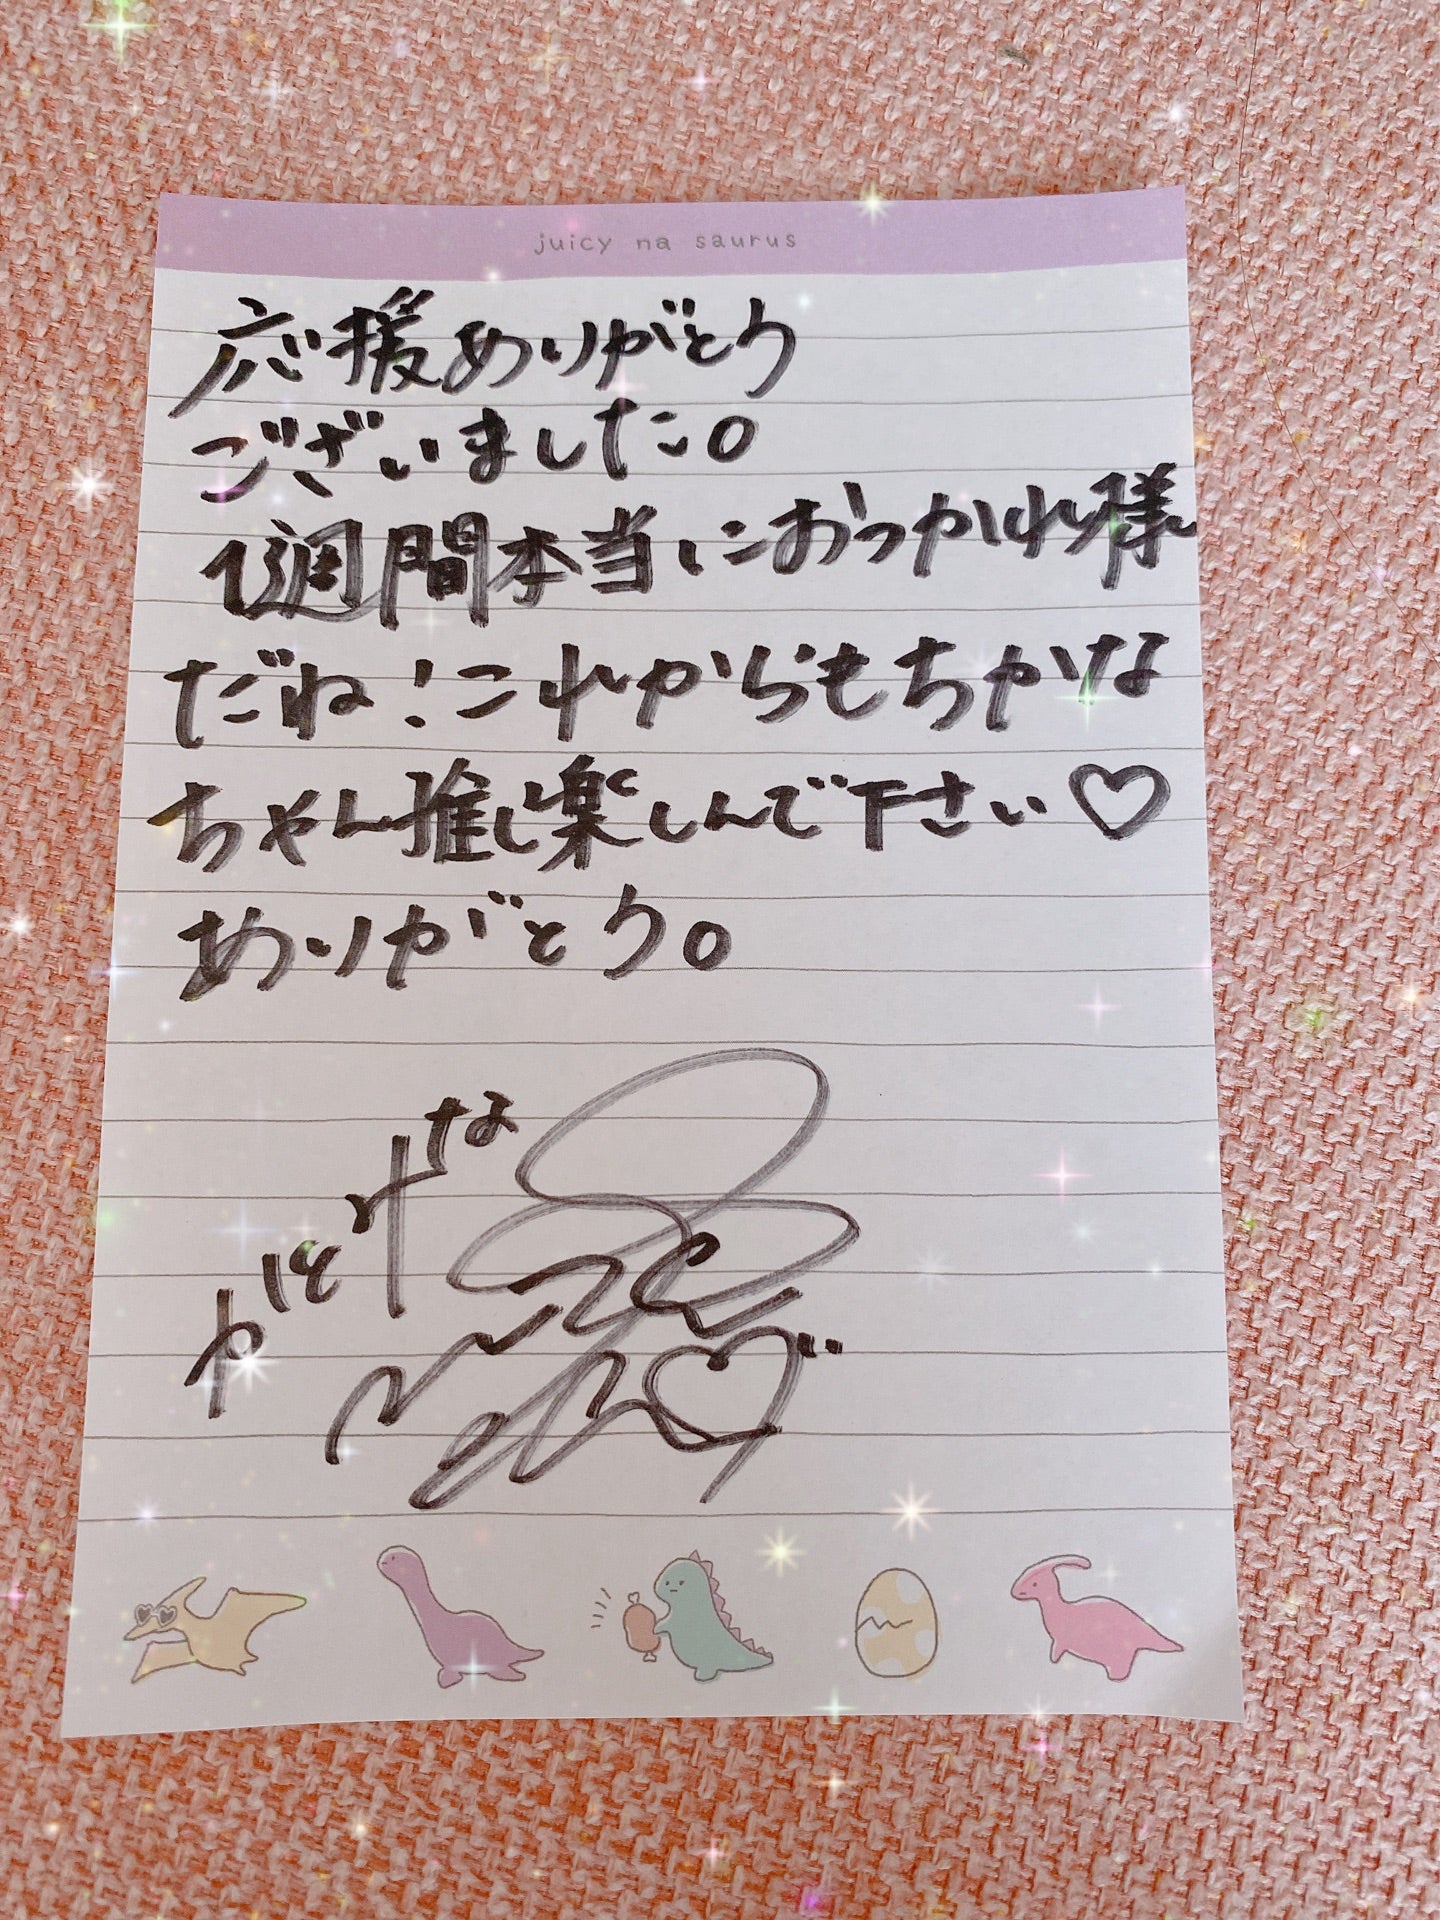 juicy na saurus
応援ありがとう
ございました。
1週間本当におつかれ様
だね！これからもちかな
ちゃん推し楽しんで下さい♡
ありがとう。